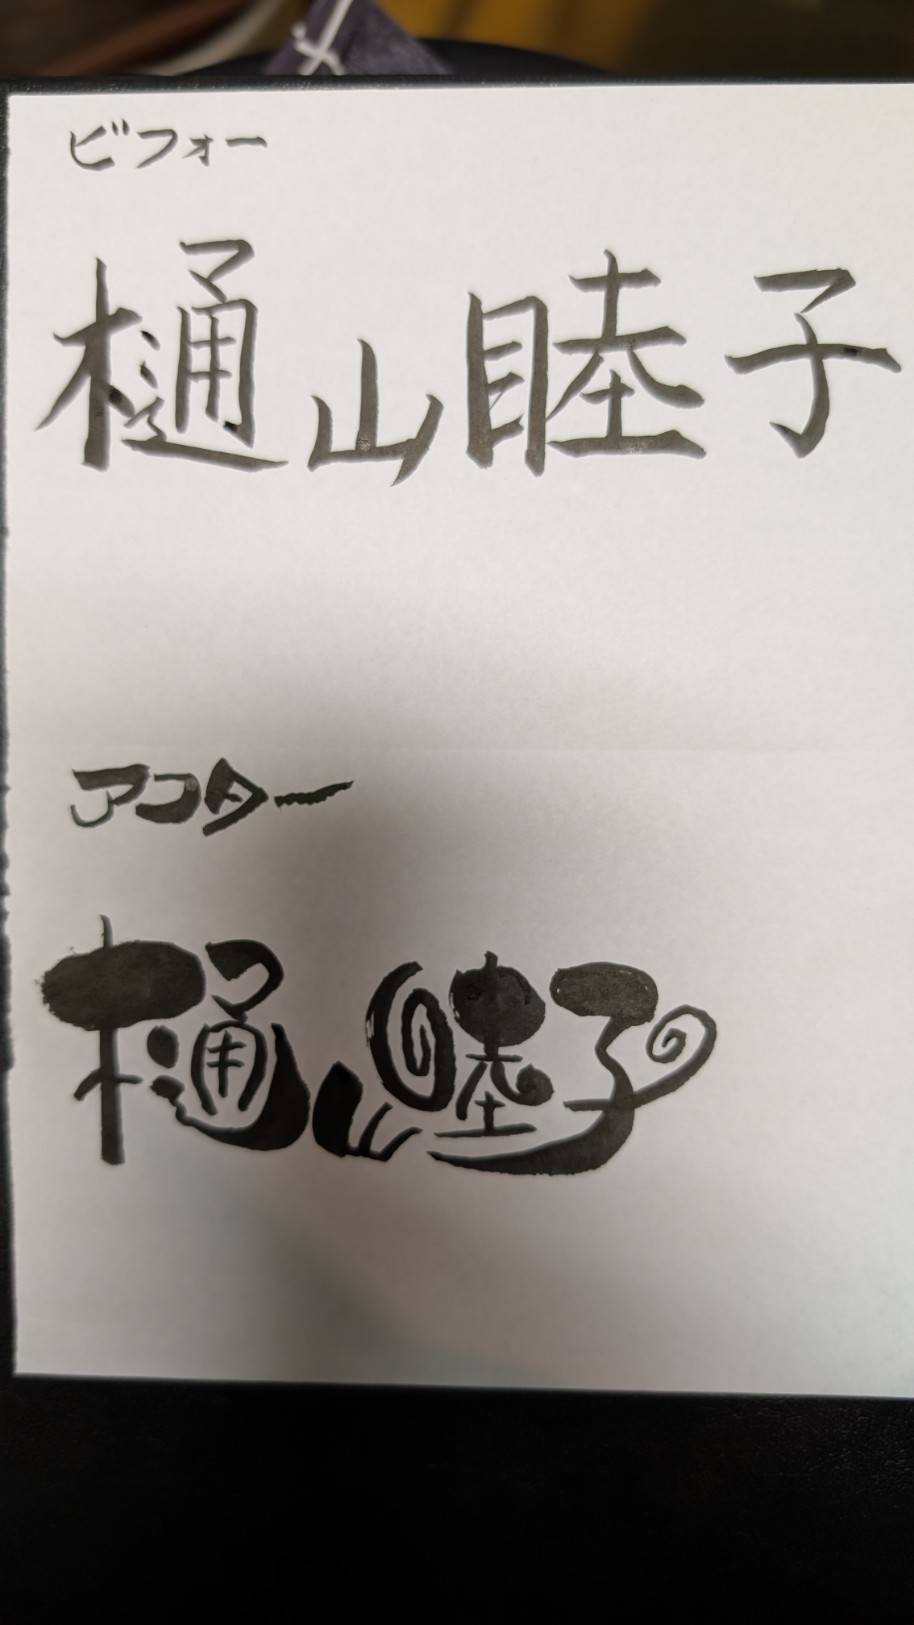 ビフォー
樋山睦子
アフター
樋山睦子